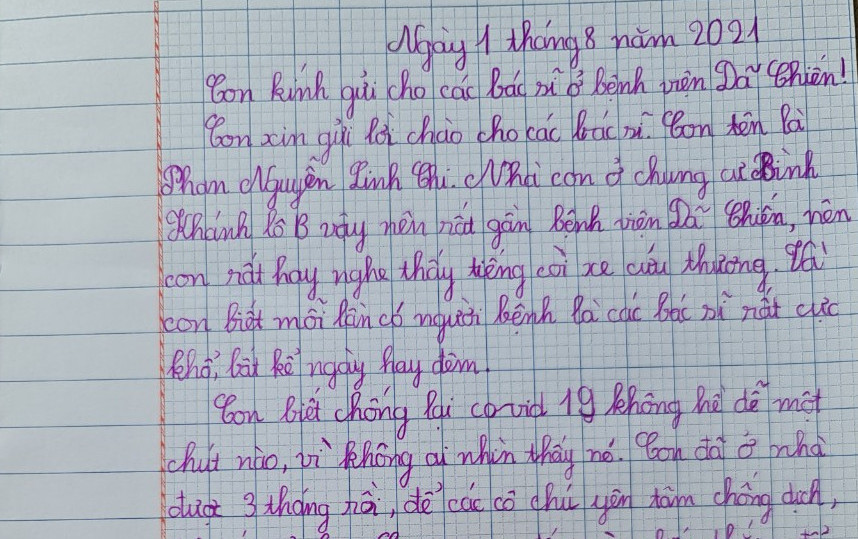 Ngày 1 tháng 8 năm 2021
Con kính gửi cho các bác sĩ ở bệnh viện Dã Chiến!
Con xin gửi lời chào cho các bác sĩ. Con tên là
Phan Nguyễn Linh Chi. Nhà con ở chung cư Bình
Khánh lô B vậy nên rất gần Bệnh viện Dã Chiến, nên
con rất hay nghe thấy tiếng còi xe cứu thương. Và
con biết mỗi lần có người bệnh là các bác sĩ rất cực
khổ, bất kể ngày hay đêm.
Con biết chống lại covid 19 không hề dễ một
chút nào, vì không ai nhìn thấy nó. Con đã ở nhà
được 3 tháng rồi, để các cô chú yên tâm chống dịch,